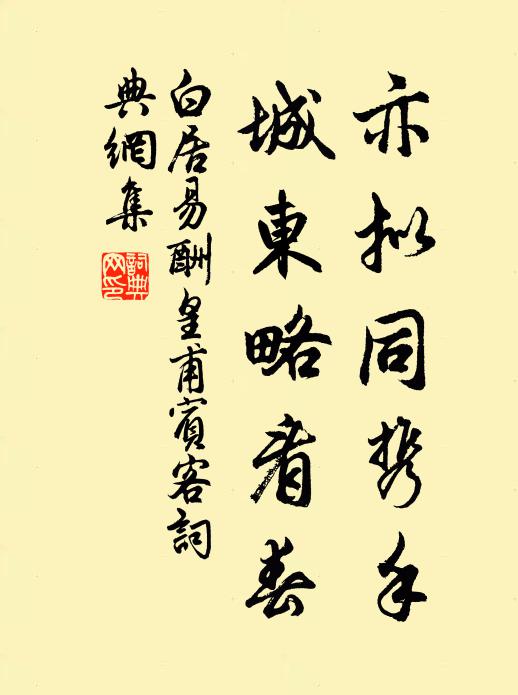 亦拟同携手
城東略看春
白居易酬皇甫賓客詞
典網集
詞典
网印